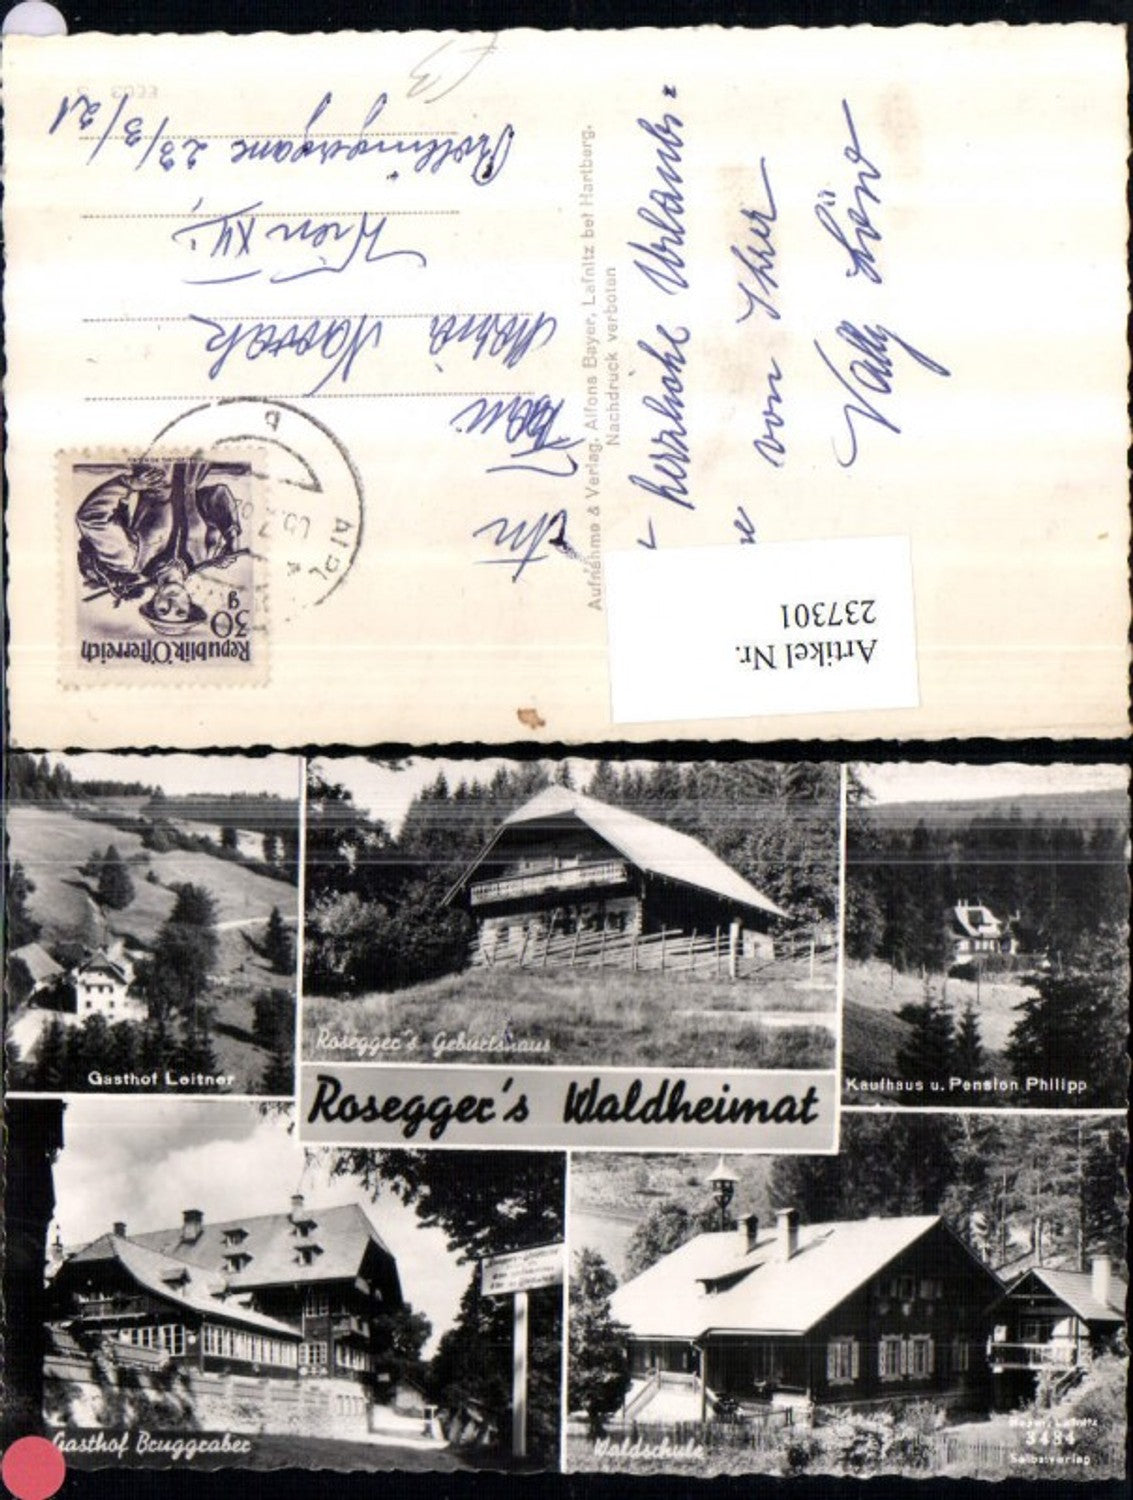 An
Frau
Maria Nowak
Wien XVI.,
23/3/21
Herzliche Urlaubs=
von Ihrer
Vally Löw
Republik Österreich
30
g
Aufnahme & Verlag, Alfons Bayer, Lafnitz bei Hartberg.
Nachdruck verboten
Artikel Nr.
237301
Gasthof Leitner
Rosegger's Geburtshaus
Kaufhaus u. Pension Philipp
Rosegger's Waldheimat
Gasthof Bruggraber
Waldschule
Bayer, Lafnitz
8484
Selbstverlag